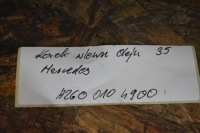 Korek wlewu Oleju 35
Mercedes
A260 010 4900